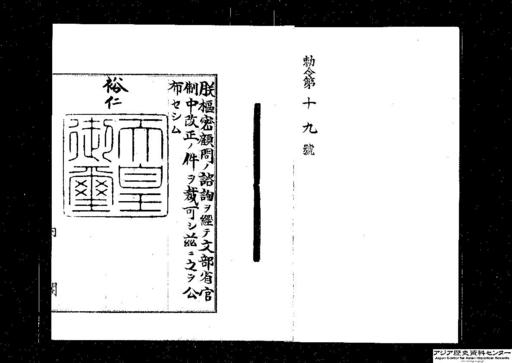 勅令第十九號
朕樞密顧問ノ諮詢ヲ經テ文部省官
制中改正ノ件ヲ裁可シ茲ニ之ヲ公
布セシム
裕仁
天皇
御璽
内閣
アジア歴史資料センター
Japan Center for Asian Historical Records